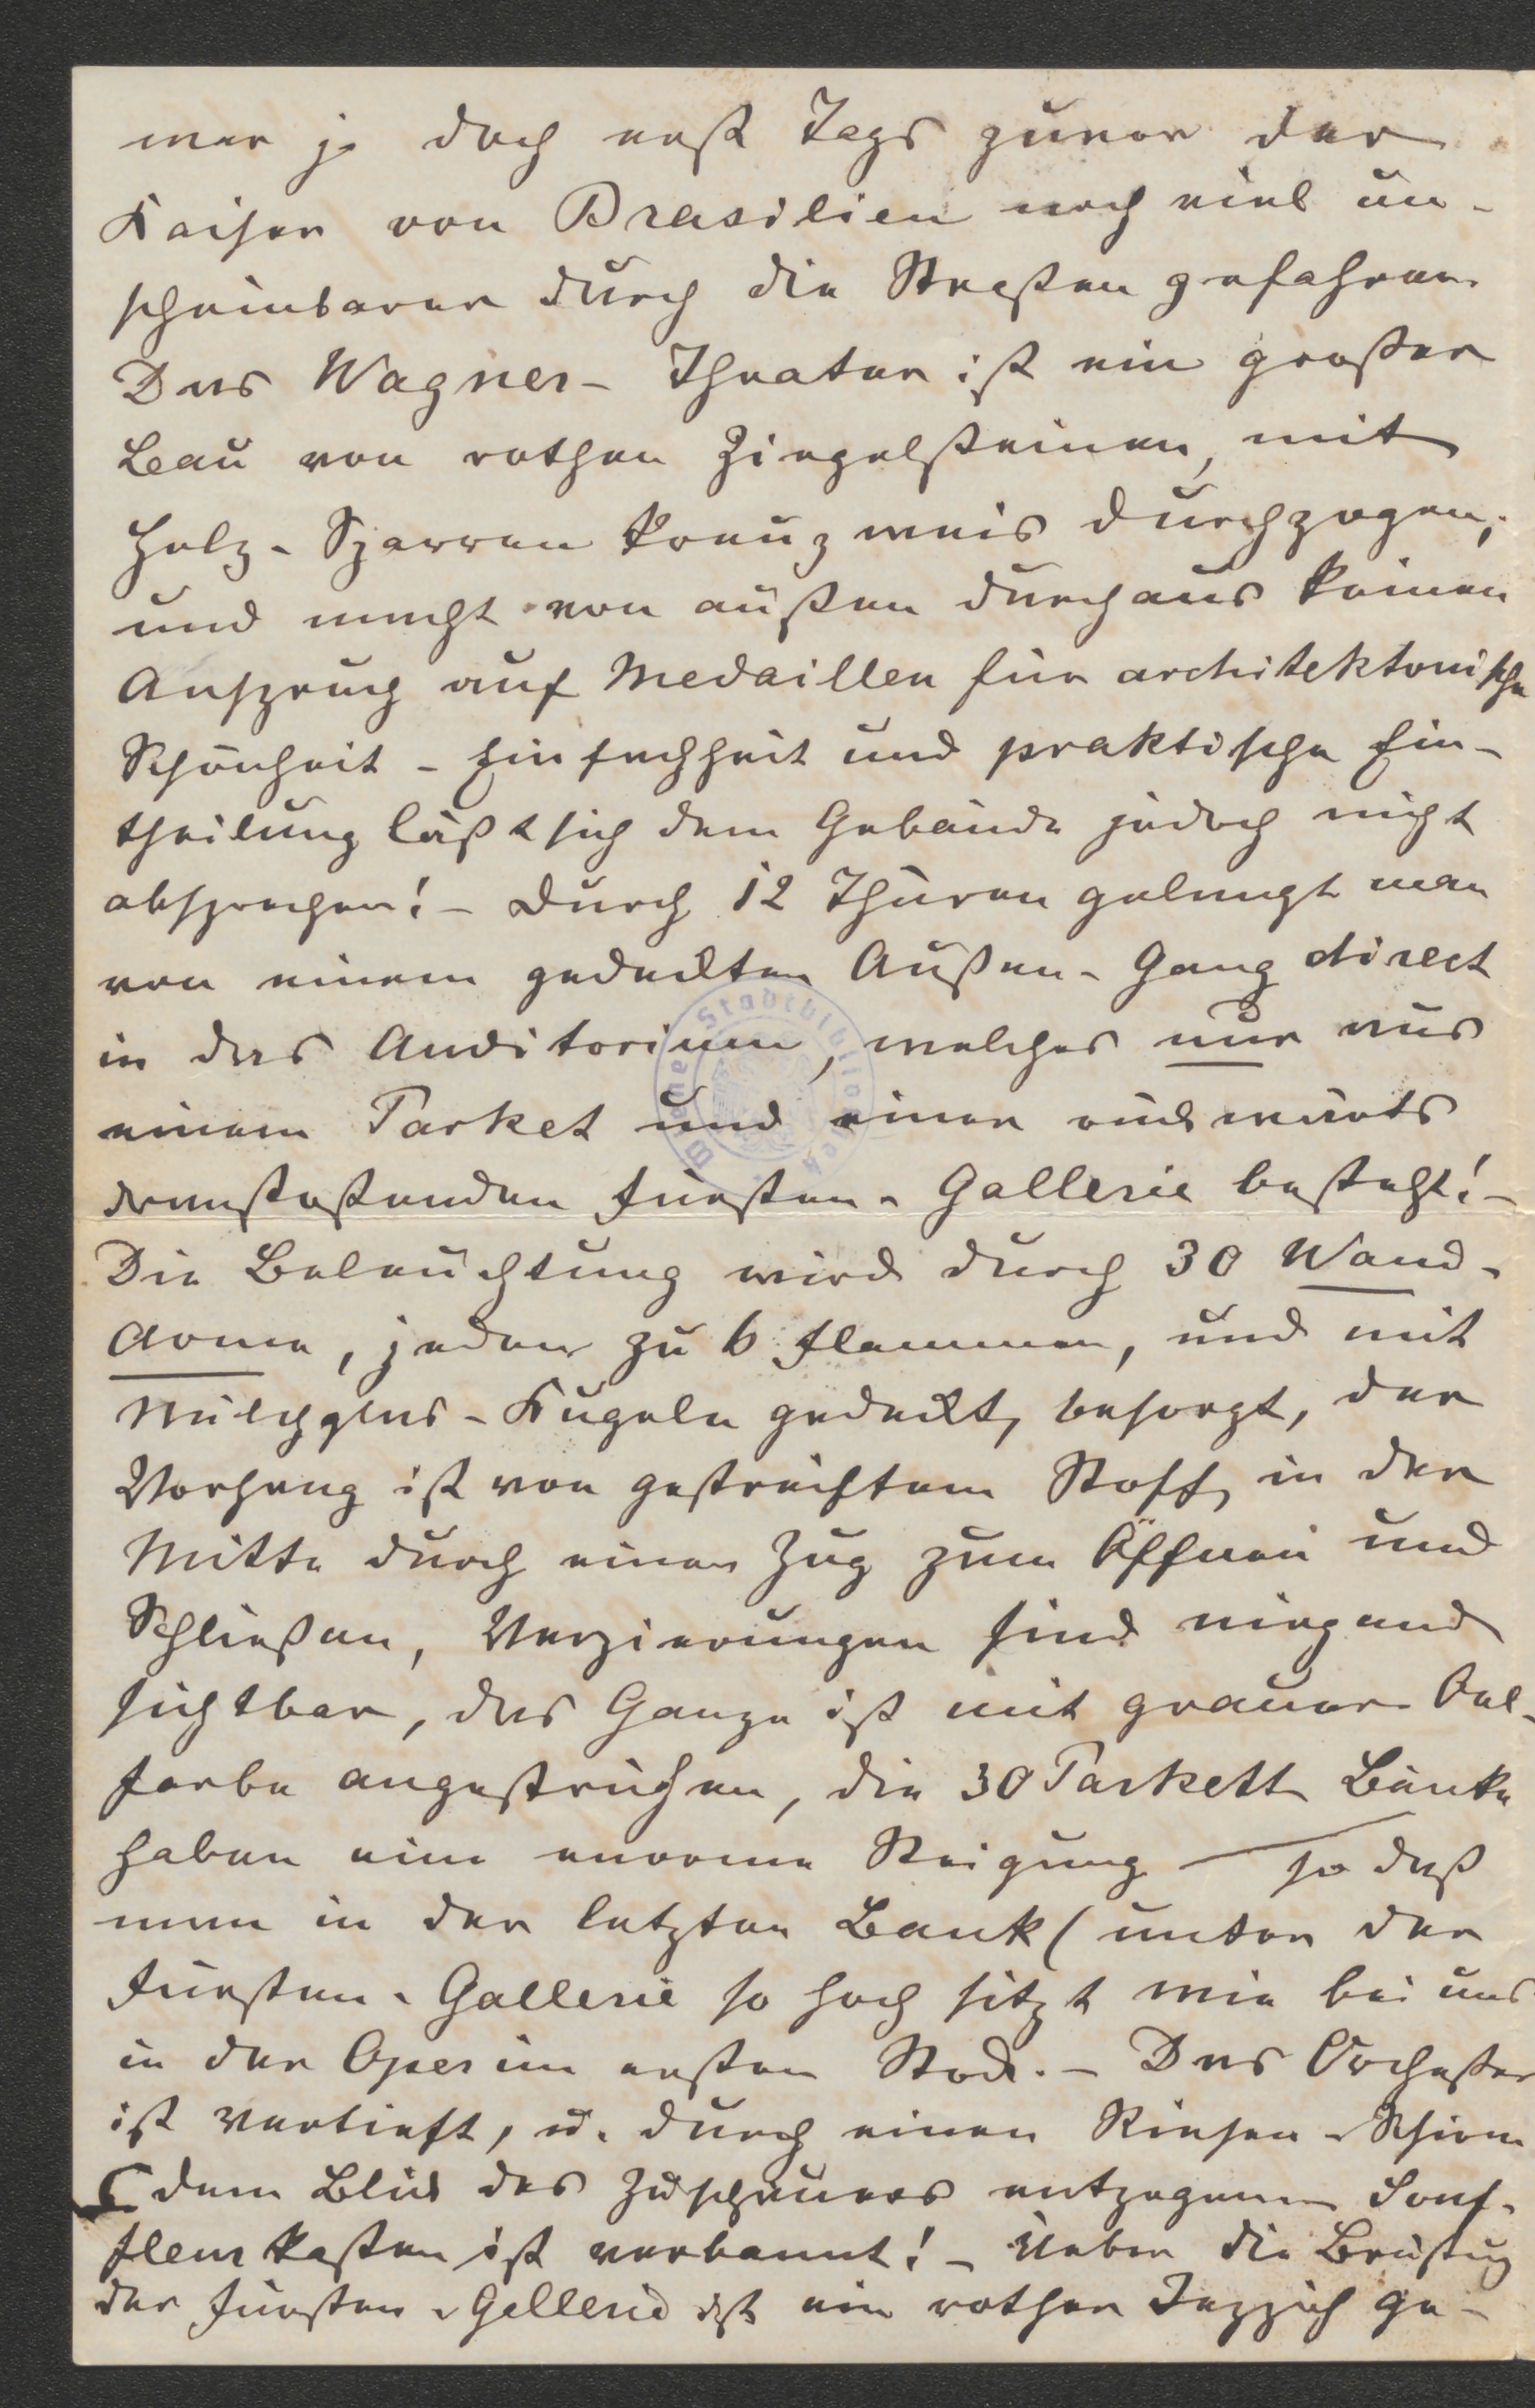 war ja doch erst Tags zuvor der
Kaiser von Brasilien noch viel un-
scheinbarer durch die Straßen gefahren
Das Wagner-Theater ist ein großer
Bau von rothen Ziegelsteinen, mit
Holz-Sparren kreuzweis durchzogen,
und macht von außen durchaus keinen
Anspruch auf Medaillen für architektonische
Schönheit - Einfachheit und praktische Ein-
theilung läßt sich dem Gebäude jedoch nicht
absprechen! - Durch 12 Thüren gelangt man
von einem gedeckten Außen-Gang direct
in das Auditorium, welches nur aus
einem Parket und einer rückwärts
dranstoßenden Fürsten-Gallerie besteht! -
Die Beleuchtung wird durch 30 Wand-
Arme, jeder zu 6 Flammen, und mit
Milchglas-Kugeln gedeckt, besorgt, der
Vorhang ist von gestreiftem Stoff, in der
Mitte durch einen Zug zum Öffnen und
Schließen, Verzierungen sind nirgend
sichtbar, das Ganze ist mit grauer Oel-
farbe angestrichen, die 30 Parkett Bänke
haben eine enorme Steigung — so daß
man in der letzten Bank (unter der
Fürsten-Gallerie so hoch sitzt wie bei uns
in der Oper im ersten Stock. - Das Orchester
ist vertieft, u. durch einen Riesen-Schirm
dem Blick des Zuschauers entzogen Souf-
fleurkasten ist verbannt! - Ueber die Brüstung
der Fürsten-Gallerie ist ein rother Teppich ge-